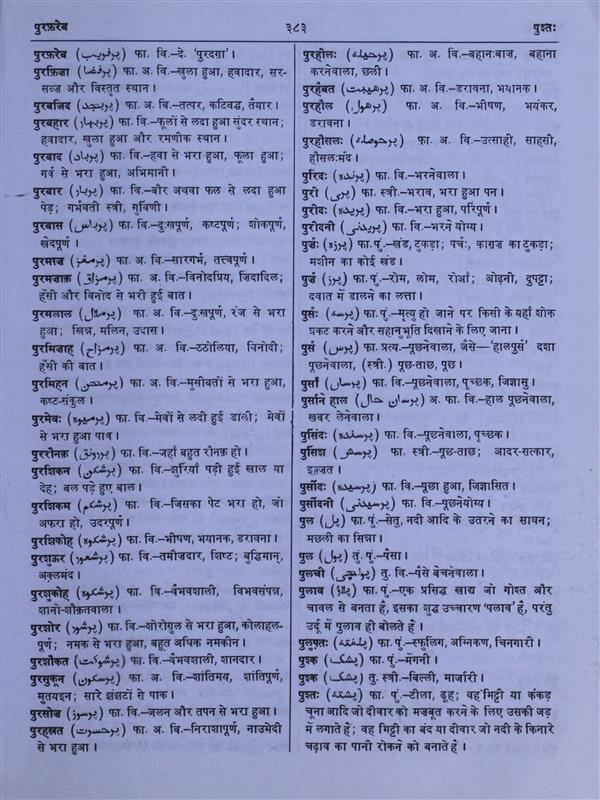 पुरफ़रेब
३८३
पुश्तः
पुरफ़रेब (پرفریب) फा. वि.–दे. 'पुरदग़ा'।
पुरफ़िज़ा (پرفضا) फा. अ. वि.–खुला हुआ, हवादार, सर-
सब्ज़ और विस्तृत स्थान।
पुरबजिद (پربجد) फा. अ. वि.–तत्पर, कटिबद्ध, तैयार।
पुरबहार (پربہار) फा. वि.–फूलों से लदा हुआ सुंदर स्थान;
हवादार, खुला हुआ और रमणीक स्थान।
पुरबाद (پرباد) फा. वि.–हवा से भरा हुआ, फूला हुआ;
गर्व से भरा हुआ, अभिमानी।
पुरबार (پربار) फा. वि.–बौर अथवा फल से लदा हुआ
पेड़; गर्भवती स्त्री, गुर्विणी।
पुरबास (پرباس) फा. अ. वि.–दुःखपूर्ण, कष्टपूर्ण; शोकपूर्ण,
खेदपूर्ण।
पुरमग़्ज़ (پرمغز) फा. अ. वि.–सारगर्भ, तत्त्वपूर्ण।
पुरमज़ाक़ (پرمزاق) फा. अ. वि.–विनोदप्रिय, ज़िंदादिल;
हँसी और विनोद से भरी हुई बात।
पुरमलाल (پرملال) फा. अ. वि.–दुःखपूर्ण, रंज से भरा
हुआ; खिन्न, मलिन, उदास।
पुरमिज़ाह (پرمزاح) फा. अ. वि.–ठठोलिया, विनोदी;
हँसी की बात।
पुरमिहन (پرمحن) फा. अ. वि.–मुसीबतों से भरा हुआ,
कष्ट-संकुल।
पुरमेवः (پرمیوہ) फा. वि.–मेवों से लदी हुई डाली; मेवों
से भरा हुआ पात्र।
पुररौनक़ (پررونق) फा. वि.–जहाँ बहुत रौनक़ हो।
पुरशिकन (پرشکن) फा. वि.–झुर्रियाँ पड़ी हुई खाल या
देह; बल पड़े हुए बाल।
पुरशिकम (پرشکم) फा. वि.–जिसका पेट भरा हो, जो
अफरा हो, उदरपूर्ण।
पुरशिकोह (پرشکوہ) फा. वि.–भीषण, भयानक, डरावना।
पुरशुऊर (پرشعور) फा. अ. वि.–तमीज़दार, शिष्ट; बुद्धिमान्,
अक़्लमंद।
पुरशुकोह (پرشکوہ) फा. वि.–वैभवशाली, विभवसंपन्न,
शानो-शौक़तवाला।
पुरशोर (پرشور) फा. वि.–शोरोगुल से भरा हुआ, कोलाहल-
पूर्ण; नमक से भरा हुआ, बहुत अधिक नमकीन।
पुरशौकत (پرشوکت) फा. वि.–वैभवशाली, शानदार।
पुरसुकून (پرسکون) फा. अ. वि.–शांतिमय, शांतिपूर्ण,
मुतमइन; सारे झंझटों से पाक।
पुरसोज़ (پرسوز) फा. वि.–जलन और तपन से भरा हुआ।
पुरहस्रत (پرحسرت) फा. अ. वि.–निराशापूर्ण, नाउमेदी
से भरा हुआ।
पुरहीलः (پرحیلہ) फा. अ. वि.–बहानःबाज़, बहाना
करनेवाला, छली।
पुरहैबत (پرھیبت) फा. अ. वि.–डरावना, भयानक।
पुरहौल (پرھول) फा. अ. वि.–भीषण, भयंकर,
डरावना।
पुरहौसलः (پرحوصلہ) फा. अ. वि.–उत्साही, साहसी,
हौसलःमंद।
पुरिंदः (پرندہ) फा. वि.–भरनेवाला।
पुरी (پری) फा. स्त्री.–भराव, भरा हुआ पन।
पुरीदः (پریدہ) फा. वि.–भरा हुआ, परिपूर्ण।
पुरीदनी (پریدنی) फा. वि.–भरने योग्य।
पुर्ज़ः (پرزہ) फा. पुं.–खंड, टुकड़ा; पर्चः, काग़ज़ का टुकड़ा;
मशीन का कोई खंड।
पुर्ज़ (پرز) फा. पुं.–रोम, लोम, रोआँ; ओढ़नी, दुपट्टा;
दवात में डालने का लत्ता।
पुर्सः (پرسہ) फा. पुं.–मृत्यु हो जाने पर किसी के यहाँ शोक
प्रकट करने और सहानुभूति दिखाने के लिए जाना।
पुर्स (پرس) फा. प्रत्य.–पूछनेवाला, जैसे–'हालपुर्स' दशा
पूछनेवाला, (स्त्री.) पूछ-ताछ, पूछ।
पुर्सां (پرساں) फा. वि.–पूछनेवाला, पृच्छक, जिज्ञासु।
पुर्साने हाल (پرسان حال) अ. फा. वि.–हाल पूछनेवाला,
ख़बर लेनेवाला।
पुर्सिंदः (پرسندہ) फा. वि.–पूछनेवाला, पृच्छक।
पुर्सिश (پرسش) फा. स्त्री.–पूछ-ताछ; आदर-सत्कार,
इज़्ज़त।
पुर्सीदः (پرسیدہ) फा. वि.–पूछा हुआ, जिज्ञासित।
पुर्सीदनी (پرسیدنی) फा. वि.–पूछनेयोग्य।
पुल (پل) फा. पुं.–सेतु, नदी आदि के उतरने का साधन;
मछली का सिन्ना।
पुल (پول) तु. पुं.–पैसा।
पुलची (پولچی) तु. वि.–पैसे बेचनेवाला।
पुलाव (پلاؤ) फा. पुं.–एक प्रसिद्ध खाद्य जो गोश्त और
चावल से बनता है, इसका शुद्ध उच्चारण 'पलाव' है, परंतु
उर्दू में पुलाव ही बोलते हैं।
पुलुफ़्तः (پلفتہ) फा. पुं.–स्फुलिंग, अग्निकण, चिनगारी।
पुश्क (پشک) फा. पुं.–मेंगनी।
पुश्क (پشک) तु. स्त्री.–बिल्ली, मार्जारी।
पुश्तः (پشتہ) फा. पुं.–टीला, ढूह; वह मिट्टी या कंकड़
चूना आदि जो दीवार को मज़बूत करने के लिए उसकी जड़
में लगाते हैं; वह मिट्टी का बंद या दीवार जो नदी के किनारे
चढ़ाव का पानी रोकने को बनाते हैं।